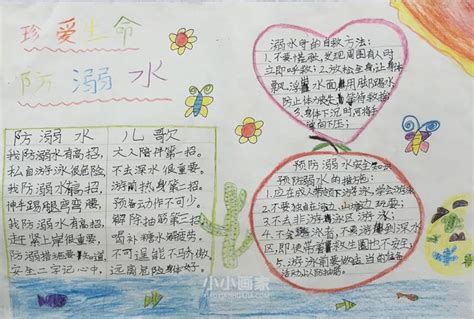 珍爱生命
防溺水
防溺水儿歌
我防溺水有高招,大人陪伴第一招。
私自游泳很不好,不去深水很重要。
我防溺水有高招,游前热身第二招。
伸手踢腿弯弯腰,预备动作不可少。
我防溺水有高招,解除抽筋第三招。
赶紧上岸很重要,喝补糖水解疲劳。
防溺措施要知道,不可逞能不马乔傲
安全二字记心中,远离危险身体好。
溺水时的自救方法:
1.不要慌张,发现周围有人时
立即呼救;2.放松全身,让身体
飘浮 水面 用脚踢水
防止体力 等待救
3.身体下沉时 可将手
掌向下压;
预防溺水安全
预防溺水的措施:
1.应在成人带领下游泳,学会游泳
2.不要独自在 边 边玩耍
3.不去非游泳区游泳;
4.不会 游泳者,不 游到深水
区,即使带着救生圈也不安全;
5.游泳前要做适当的准备
活动以防抽筋。
小小画家